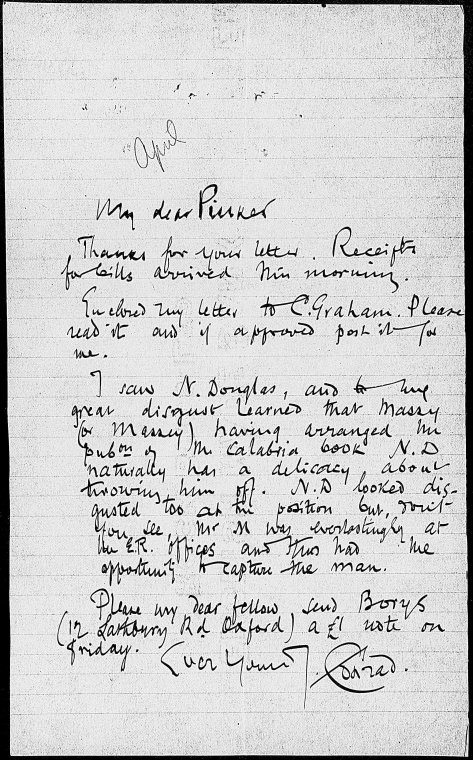 April
My dear Pinker
Thanks for your letter. Receipts
for bills arrived this morning.
Enclosed my letter to C. Graham. Please
read it and if approved post it for
me.
I saw N. Douglas, and to my
great disgust learned that Massy
(or Massey) having arranged the
pubon of the Calabria book N.D
naturally has a delicacy about
throwing him off. N.D looked dis-
gusted too at the position but, don't
you see, Mr M was everlastingly at
the E.R. offices and thus had the
opportunity to capture the man.
Please my dear fellow send Borys
(12 Lathbury Rd Oxford) a £1 note on
Friday.
Ever Yours J. Conrad.